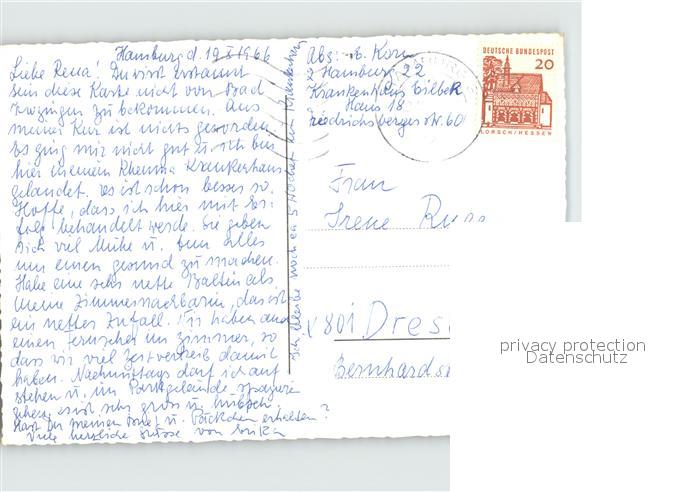 Hamburg d. 19 X 1966
Liebe Rena! Du wirst erstaunt
sein diese Karte nicht von Bad
Krozingen zu bekommen. Aus
meiner Kur ist nichts geworden
Es ging mir nicht gut u. ich bin
hier in einem Rheuma Krankenhaus
gelandet. es ist schon besser so.
Hoffe, dass ich hier mit Er-
folg behandelt werde. Sie geben
sich viel Mühe u. tun alles
um einen gesund zu machen.
Habe eine sehr nette Baltin als
meine Zimmernachbarin, das ist
ein netter Zufall. Wir haben auch
einen Fernseher im Zimmer, so
dass wir viel Zeitvertreib damit
haben. Nachmittags darf ich auf
stehen u. im Parkgelände spazieren
gehen, es ist sehr gross u. hübsch.
Hast Du meinen Brief u. Päckchen erhalten?
Viele herzliche Grüsse von Erika
Ich bleibe noch ca 5 Wochen im Krankenhaus
Abs: E. Korn
2 Hamburg 22
Krankenhaus Eilbek
Haus 18
Friedrichsbergerstr. 60
DEUTSCHE BUNDESPOST
20
LORSCH/HESSEN
Frau
Irene
X 801 Dres
Bernhards
privacy protection
Datenschutz